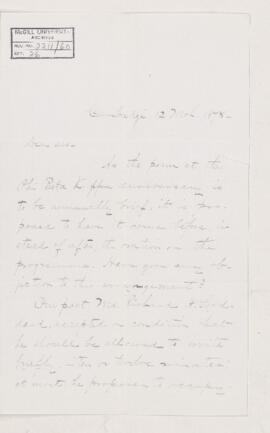 McGILL UNIVERSITY
ARCHIVES
ACC. NO. 2211/60
REF. 56
Cambridge 12 Nov. 1878.
Dear sir,
As the poem at the
Phi Beta K. anniversary is
to be unusually brief, it is pro-
posed to have it come before, in-
stead of after, the oration on the
programme. Have you any ob-
jection to the arrangement?
Our poet Mr. Richard
accepted on condition that
he should be allowed to write
briefly, ten or twelve minutes
at most he proposes to occupy.